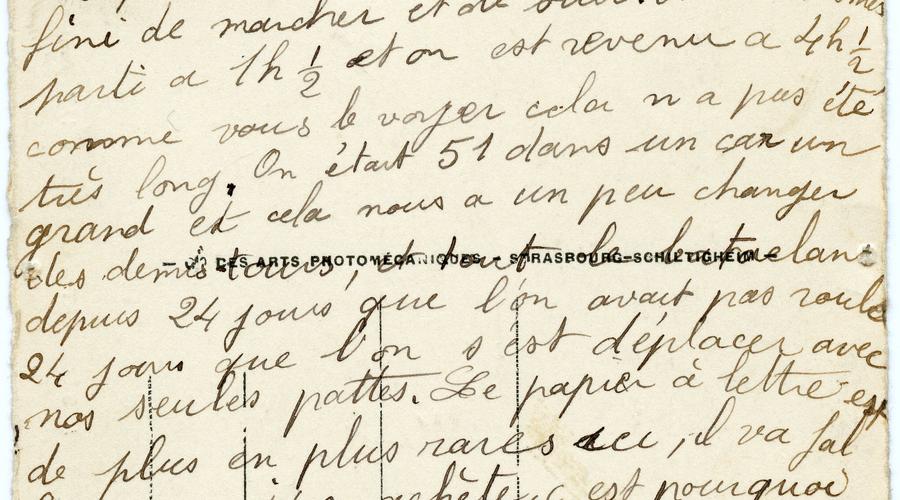 fini de marcher et de
parti a 1h 1/2 et on est revenu a 4h 1/2
comme vous le voyer cela n a pas été
très long. On était 51 dans un car un
grand et cela nous a un peu changer
des demis tours, et tout le
DES ARTS PHOTOMÉCANIQUES - STRASBOURG-SCHILTIGHEIM -
depuis 24 jours que l'on avait pas roulé
24 jours que l'on s est déplacer avec
nos seules pattes. Le papier à lettre est
de plus en plus rares ici, il va fal
est pourquoi